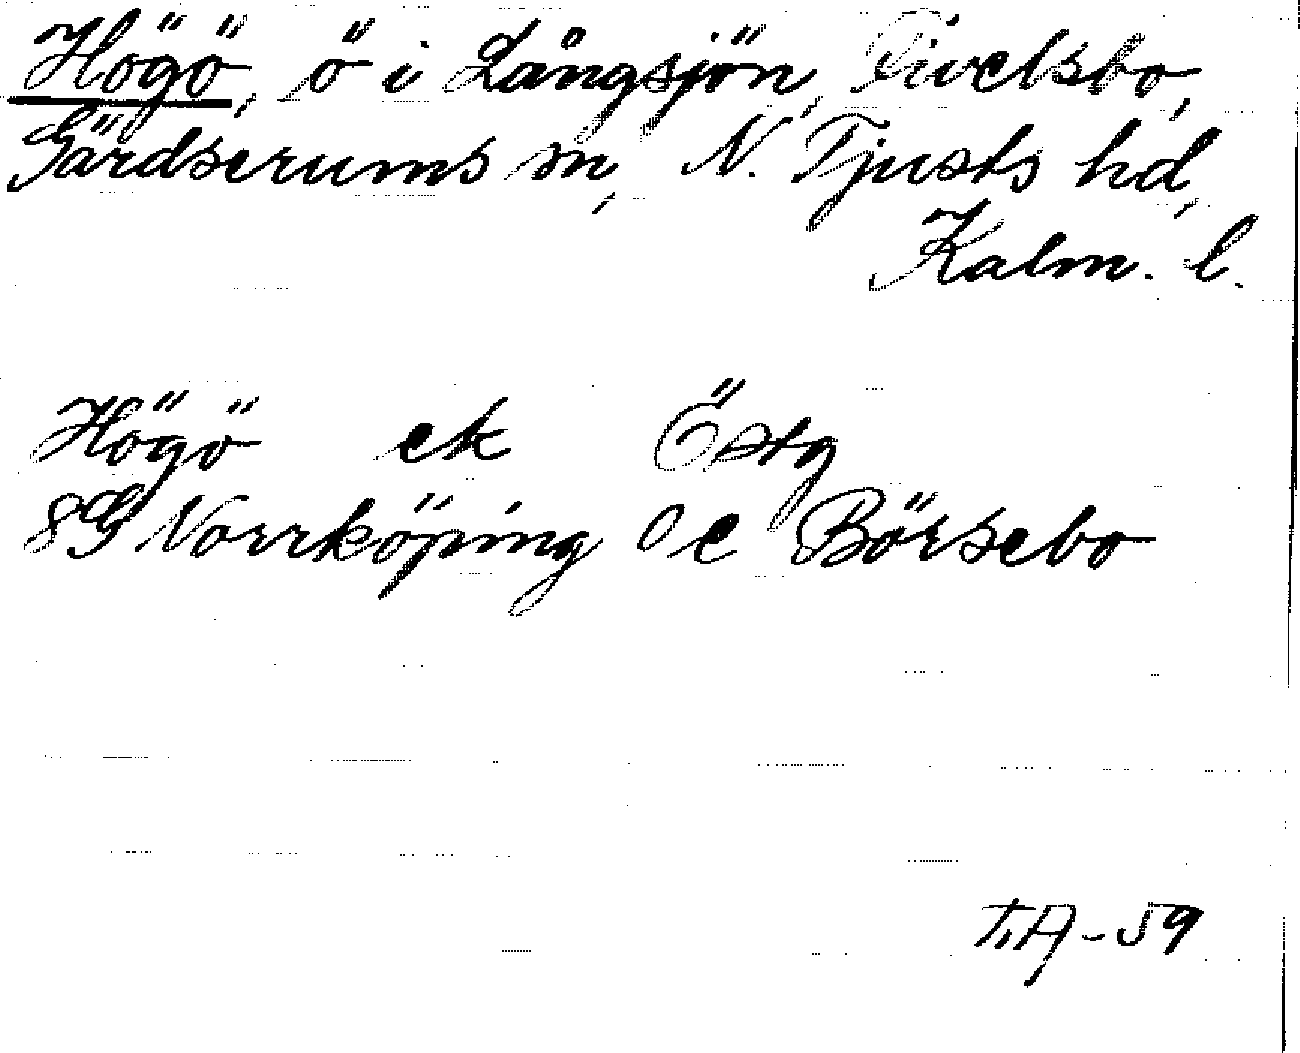 Högö, ö i Långsjön, Tivelsbo,
Gärdserums sn, N. Tjusts hd,
Kalm. l.
Högö ek Östg
8G Norrköping 0 e Börsebo
T.A-59